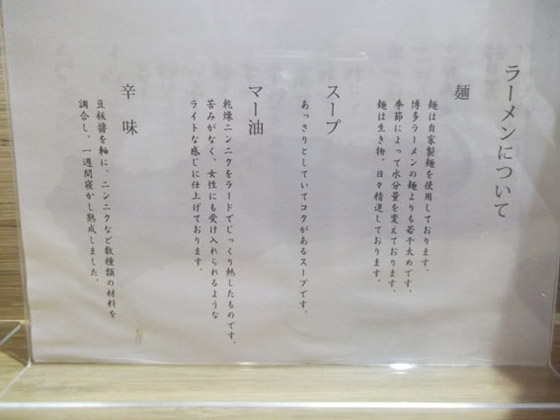 ラーメンについて
麺
麺は自家製麺を使用しております。
博多ラーメンの麺よりも若干太めです。
季節によって水分量を変えております。
麺は生き物。日々精進しております。
スープ
あっさりとしていてコクがあるスープです。
マー油
乾燥ニンニクをラードでじっくり熱したものです。
苦みがなく、女性にも受け入れられるような
ライトな感じに仕上げております。
辛味
豆板醤を軸に、ニンニクなど数種類の材料を
調合し、一週間寝かし熟成しました。